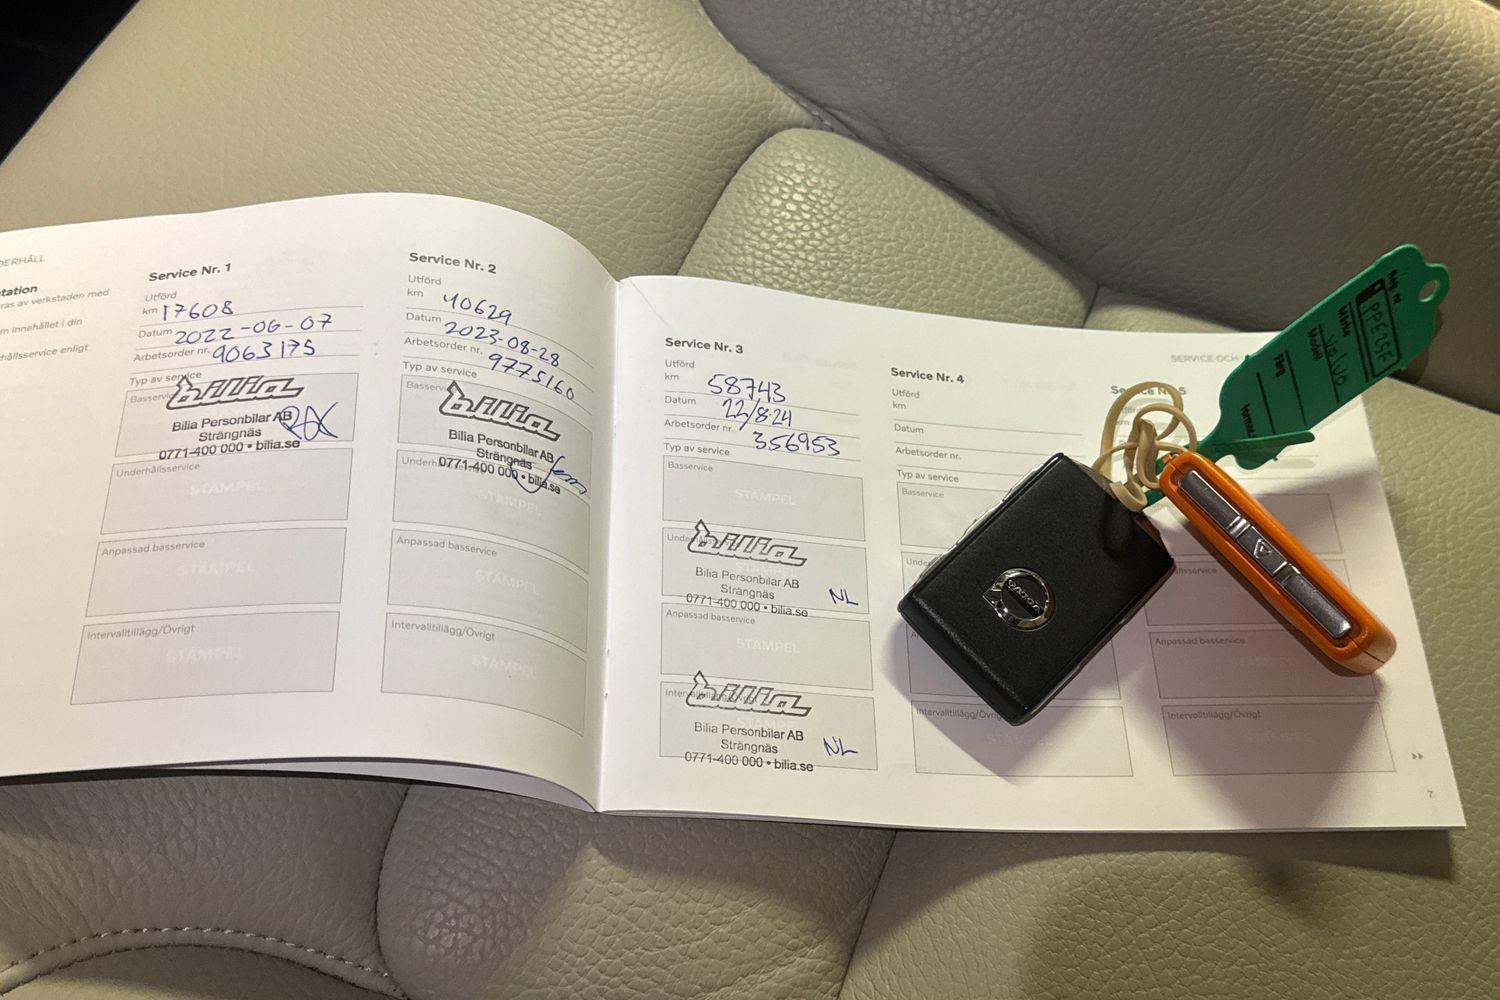 DERHÅLL
tation
ras av verkstaden med
m innehållet i din
hållsservice enligt
Service Nr. 1
Utförd
km 17608
Datum 2022-06-07
Arbetsorder nr. 9063175
Typ av service
Basservice
bilia
Bilia Personbilar AB
Strängnäs
0771-400 000 • bilia.se
Underhållsservice
STÄMPEL
Anpassad basservice
STÄMPEL
Intervalltillägg/Övrigt
STÄMPEL
Service Nr. 2
Utförd
km 40629
Datum 2023-08-28
Arbetsorder nr. 9775160
Typ av service
Basservice
bilia
Bilia Personbilar AB
Strängnäs
0771-400 000 • bilia.se
STÄMPEL
Anpassad basservice
STÄMPEL
Intervalltillägg/Övrigt
STÄMPEL
Service Nr. 3
Utförd
km 58743
Datum 22/8-24
Arbetsorder nr. 356953
Typ av service
Basservice
STÄMPEL
Underhållsservice
bilia
Bilia Personbilar AB
Strängnäs NL
0771-400 000 • bilia.se
Anpassad basservice
STÄMPEL
Intervalltillägg/Övrigt
bilia
Bilia Personbilar AB
Strängnäs NL
0771-400 000 • bilia.se
SERVICE OCH
Service Nr. 4
Utförd
km
Datum
Arbetsorder nr.
Typ av service
Basservice
Intervalltillägg/Övrigt
Anpassad basservice
Intervalltillägg/Övrigt
7
VOLVO
Reg. nr
PPE25F
Märke
Volvo
Modell
Färg